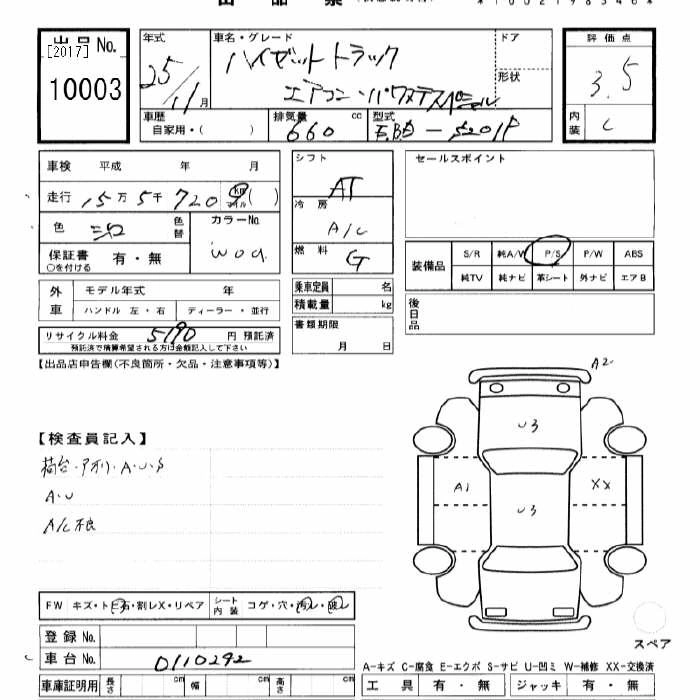 出品票
*10021985 46*
出品No.
[2017]
10003
年式
25/11月
車名・グレード
ハイゼットトラック
エアコン・パワステスペシャル
ドア
形状
評価点
3.5
内装
C
車歴
自家用・( )
排気量 cc
660
型式
EBD-S201P
車検 平成 年 月
走行 15万5千720 km マイル ( )
色
色替
カラーNo.
W09
保証書
○を付ける
有・無
シフト
AT
冷房
A/C
燃料
G
セールスポイント
装備品
S/R 純A/V P/S P/W ABS
純TV 純ナビ 革シート 外ナビ エアB
外車
モデル年式 年
ハンドル 左・右 ディーラー・並行
乗車定員 名
積載量 kg
後日品
リサイクル料金 5190 円 預託済
預託済で積算希望される方は金額記入して下さい
書類期限
月 日
【出品店申告欄(不良箇所・欠品・注意事項等)】
A2
U3
【検査員記入】
荷台・アオリ・A・U・S
A1
XX
A・U
U3
A/C不良
FW キズ・トビ石・割レX・リペア
シート内装
コゲ・穴・汚レ・破レ
登録No.
車台No.
0110292
スペア
A-キズ C-腐食 E-エクボ S-サビ U-凹ミ W-補修 XX-交換済
車庫証明用 長さ cm 幅 cm 高さ cm
工具 有・無 ジャッキ 有・無